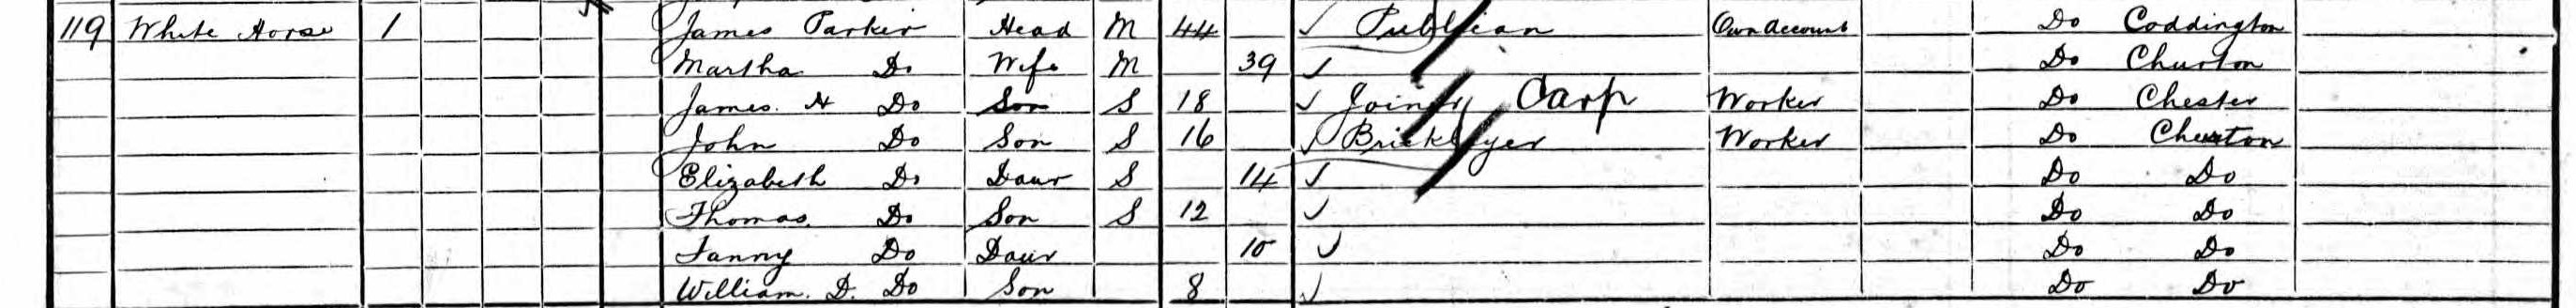 119 White Horse 1 James Parker Head M 44 ✓ Publican Own Account Do Coddington
Martha Do Wife M 39 ✓ Do Churton
James. H Do Son S 18 ✓ Joiner Carp Worker Do Chester
John Do Son S 16 ✓ Bricklayer Worker Do Churton
Elizabeth Do Daur S 14 ✓ Do Do
Thomas. Do Son S 12 ✓ Do Do
Fanny Do Daur 10 ✓ Do Do
William. D. Do Son 8 ✓ Do Do